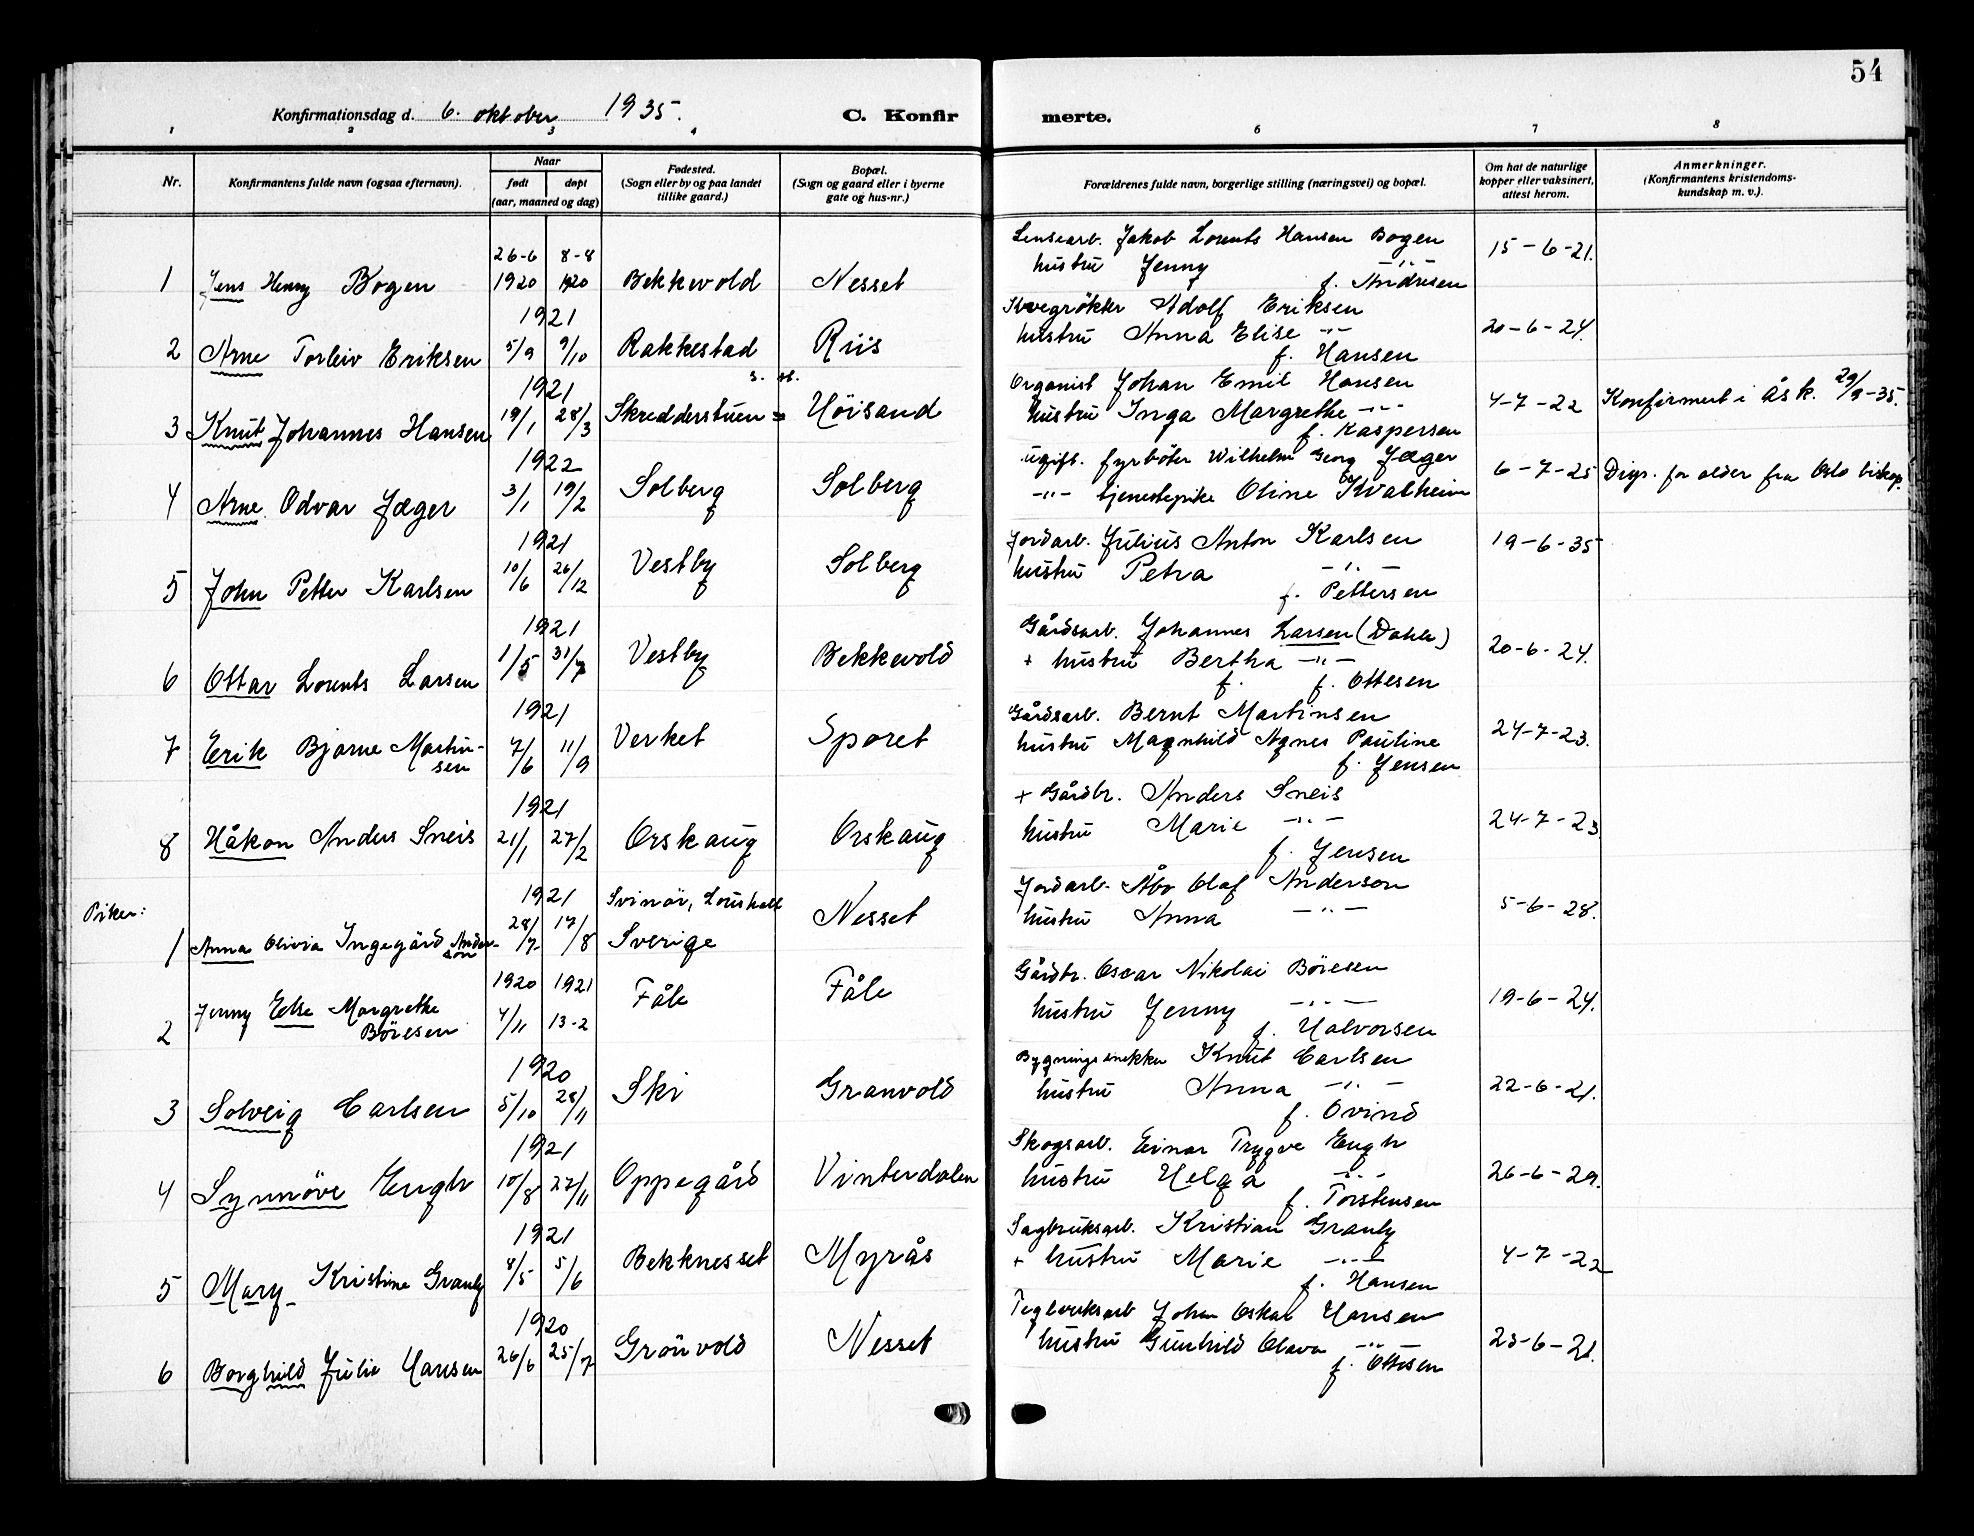 54
Konfirmationsdag d. 6. oktober 1935. C. Konfirmerte.
1 2 3 4 6 7 8
Nr.
Konfirmantens fulde navn (ogsaa efternavn).
Naar
født døpt
(aar, maaned og dag)
Fødested.
(Sogn eller by og paa landet
tillike gaard.)
Bopæl.
(Sogn og gaard eller i byerne
gate og hus-nr.)
Forældrenes fulde navn, borgerlige stilling (næringsvei) og bopæl.
Om hat de naturlige
kopper eller vaksinert,
attest herom.
Anmerkninger.
(Konfirmantens kristendoms-
kundskap m. v.).
Lensearb. Jakob Lorents Hansen Bogen
26-6 8-8 hustru Jenny -"- 15-6-21.
1 Jens Henry Bogen 1920 1920 Bekkevold Nesset f. Andresen
1921 Adolf Eriksen
hustru Anna Elise -"- 20-6-24.
2 Arne Torleiv Eriksen 5/9 9/10 Rakkestad Riis f. Hansen
1921 Organist Johan Emil Hansen
3 Knut Johannes Hansen 19/1 28/3 Skredderstuen Høisand hustru Inga Margrethe -"- 4-7-22 Konfirmert i Ås k. 29/9-35.
f. Kaspersen
1922 ugift. fyrbøter Wilhelm Georg Jæger
4 Arne Odvar Jæger 3/1 19/2 Solberg Solberg -"- tjenestepike Oline Kvalheim 6-7-25 Disp. for alder fra Oslo biskop.
1921 Jordarb. Julius Anton Karlsen 19-6-35
hustru Petra -"-
5 John Petter Karlsen 10/6 26/12 Vestby Solberg f. Pettersen
1921 Gårdsarb. Johannes Larsen (Dahle)
+ hustru Bertha -"- 20-6-24.
6 Ottar Lorents Larsen 1/5 31/7 Vestby Bekkevold f. f. Ottesen
1921 Gårdsarb. Bernt Martinsen
7 Erik Bjarne Martin-
sen 7/6 11/9 Verket Sporet hustru Magnhild Agnes Pauline 24-7-23.
f. Jensen
1921 + Gårdbr. Anders Sneis
hustru Marie -"- 24-7-23
8 Håkon Anders Sneis 21/1 27/2 Orskaug Orskaug f. Jensen
Piker:
1921 Svinør, Jordarb. Olaf Anderson
1 Anna Olivia Ingegärd Ander-
son 28/7 17/8 Sverige Nesset hustru Anna -"- 5-6-28.
1920 1921 Gårdbr. Oscar Nikolai Böresen
2 Jenny Else Margrethe
Böresen 4/11 13-2 Fåle Fåle hustru Jenny -"- 19-6-24.
f. Halvorsen
1920 Bygningssnekker Knut Carlsen
3 Solveig Carlsen 5/10 28/11 Ski Granvold hustru Anna -"- 22-6-21.
f. Ovind
1921 Skogsarb. Einar Trygve Engh
4 Synnöve Engh 10/8 27/11 Oppegård Vinterdalen hustru Helga -"- 26-6-29.
f. Torstensen
1921 Sagbruksarb. Kristian Granly
5 Mary Kristine Granly 8/5 5/6 Bekknesset Myrås + hustru Marie -"- 4-7-22
f. Hansen
1920 Teglverksarb Johan Oskar Hansen
6 Borghild Julie Hansen 26/6 25/7 Grönvold Nesset hustru Gunhild Olava -"- 23-6-21.
f. Ottesen